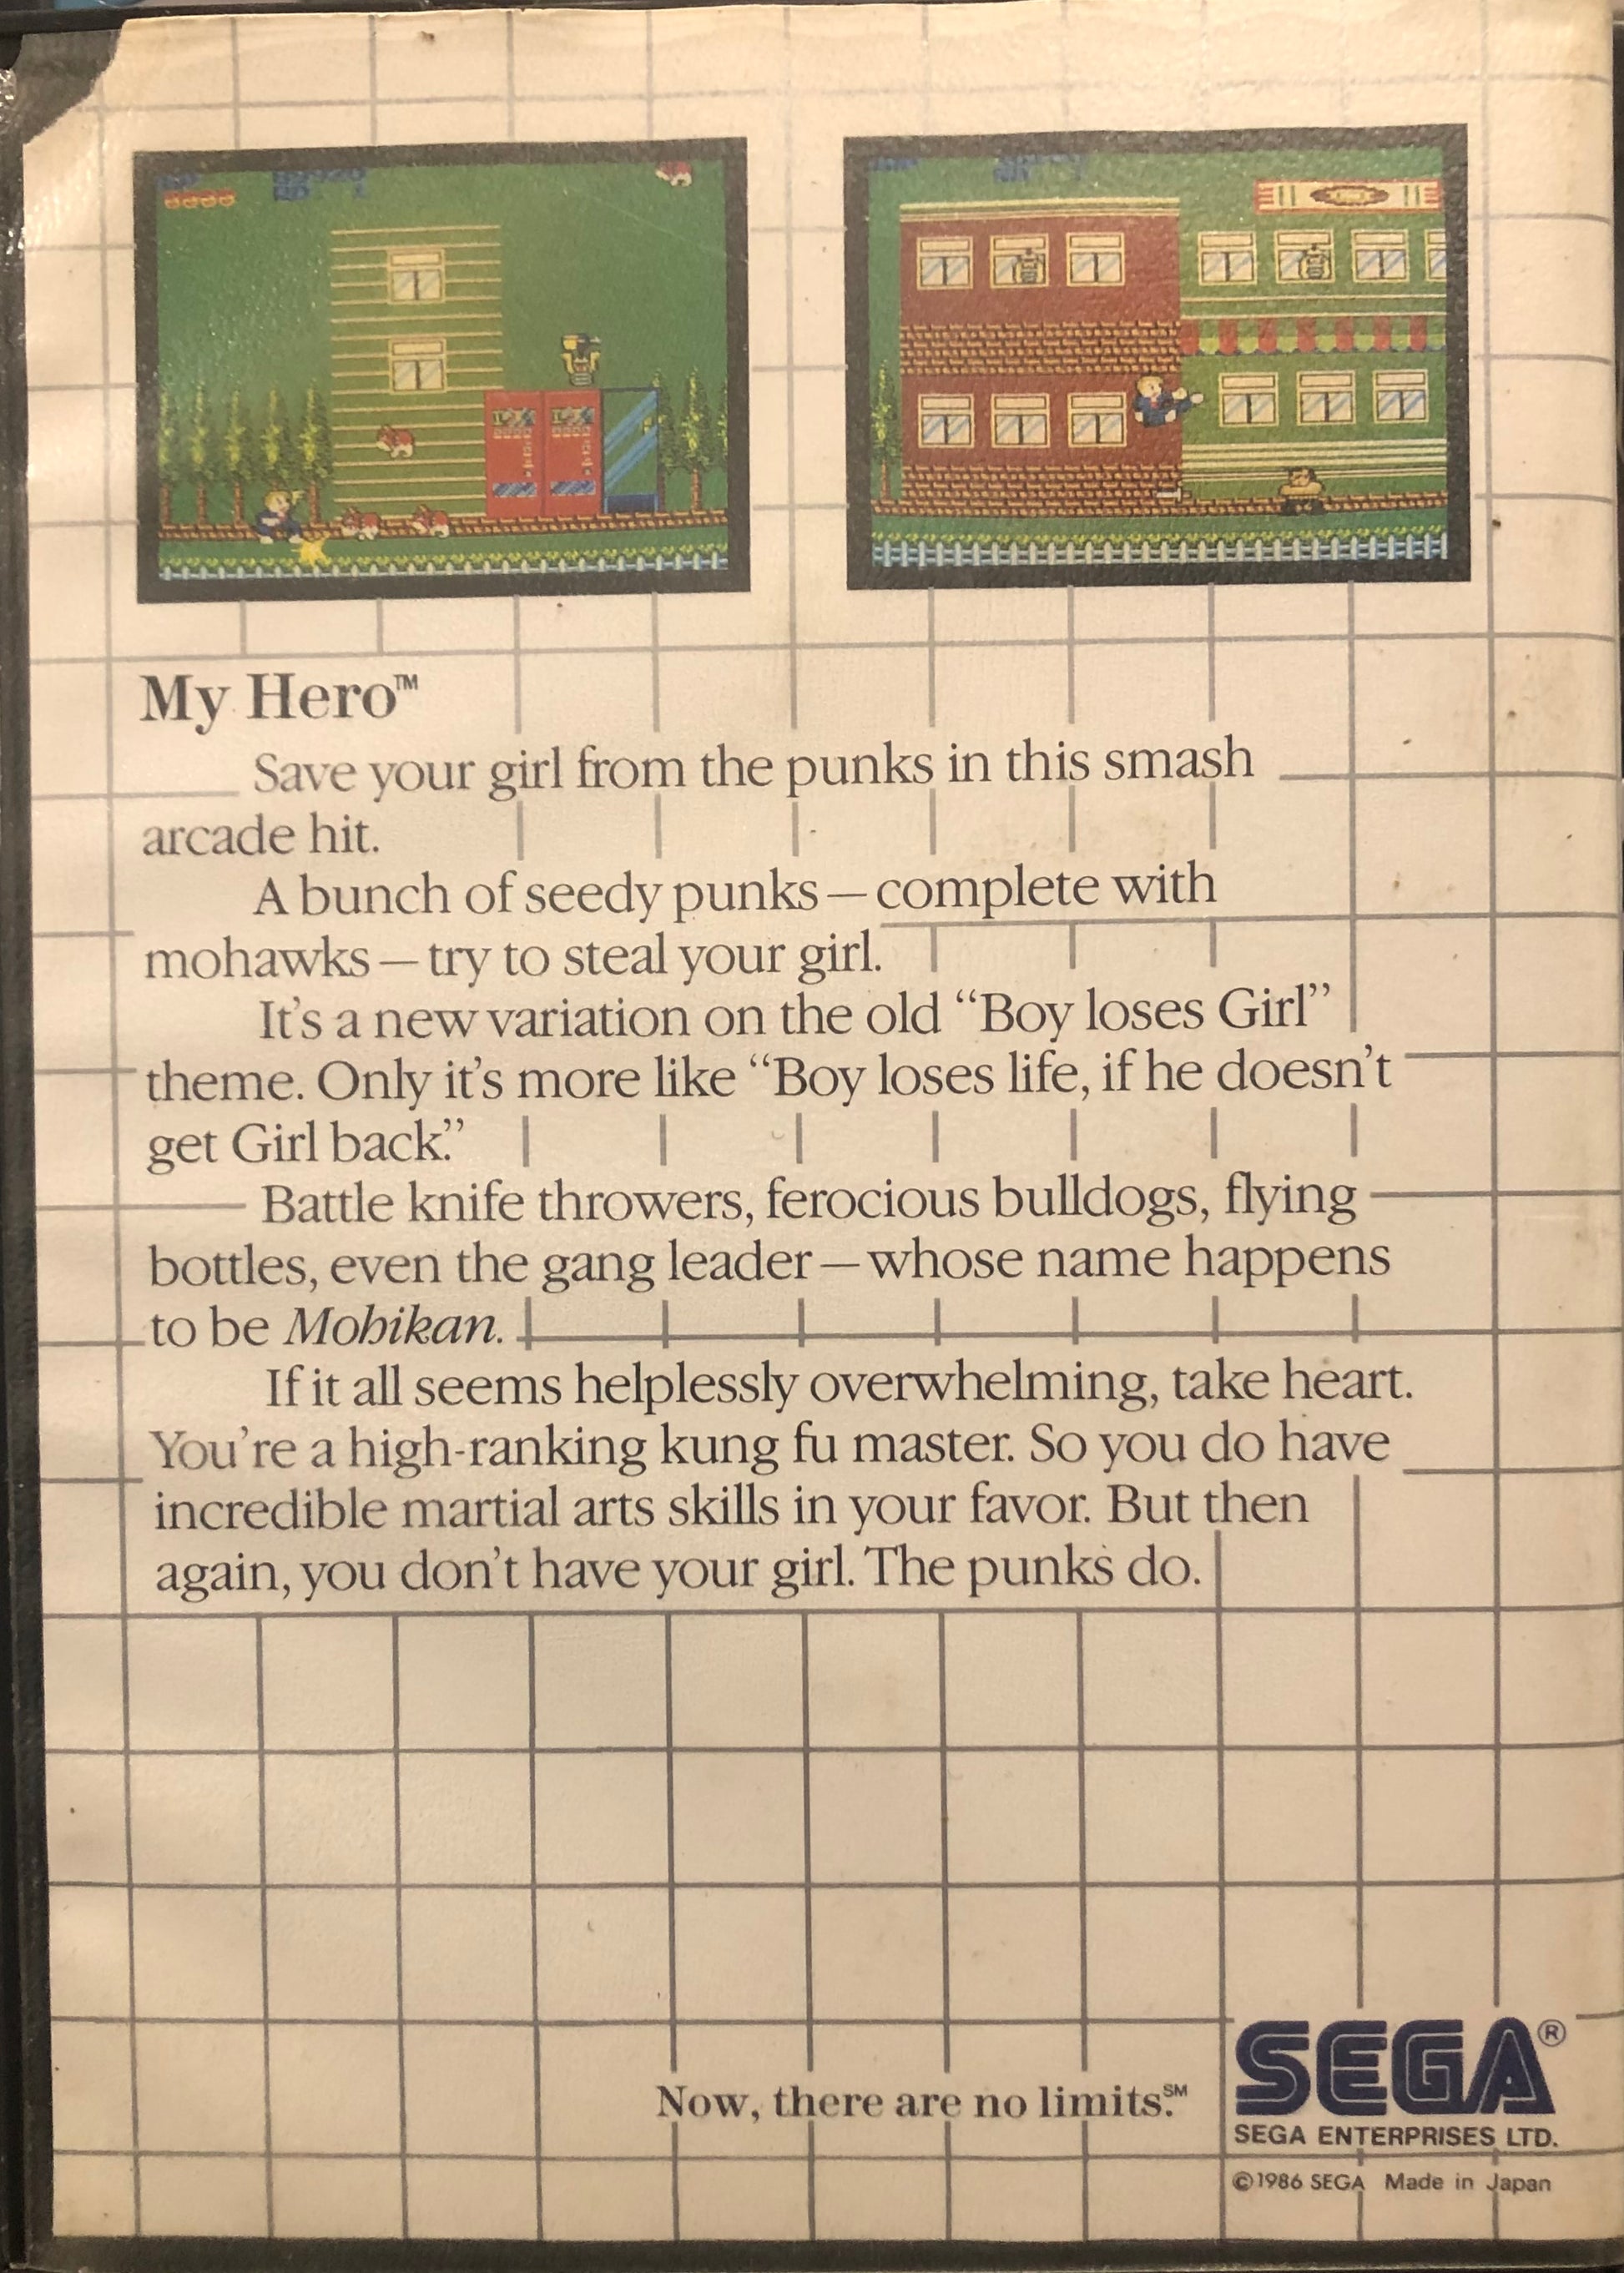 My Hero™
Save your girl from the punks in this smash
arcade hit.
A bunch of seedy punks—complete with
mohawks—try to steal your girl.
It's a new variation on the old “Boy loses Girl”
theme. Only it's more like “Boy loses life, if he doesn't
get Girl back.”
Battle knife throwers, ferocious bulldogs, flying
bottles, even the gang leader—whose name happens
to be Mohikan.
If it all seems helplessly overwhelming, take heart.
You're a high-ranking kung fu master. So you do have
incredible martial arts skills in your favor. But then
again, you don't have your girl. The punks do.
Now, there are no limits.℠
SEGA®
SEGA ENTERPRISES LTD.
©1986 SEGA Made in Japan